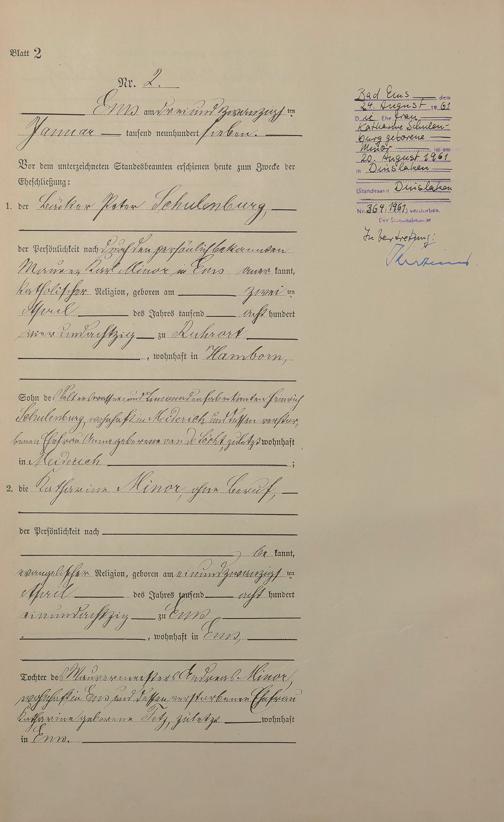 Blatt 2
Nr. 2.
Ems am drei und zwanzigsten
Januar tausend neunhundert sieben.
Vor dem unterzeichneten Standesbeamten erschienen heute zum Zwecke der
Eheschließung:
1. der Bäcker Peter Schulenburg,
der Persönlichkeit nach durch den persönlich bekannten
Maurer Karl Minor in Ems anerkannt,
katholischer Religion, geboren am zweiten
April des Jahres tausend acht hundert
vierundachtzig zu Ruhrort
, wohnhaft in Hamborn,
Sohn des Heinrich
Schulenburg, wohnhaft in Meiderich und dessen verstor-
benen Ehefrau Anna geborene van de Löcht, zuletzt wohnhaft
in Meiderich ;
2. die Katharine Minor, ohne Beruf,
der Persönlichkeit nach
bekannt,
evangelischer Religion, geboren am einundzwanzigsten
April des Jahres tausend acht hundert
einundachtzig zu Ems
, wohnhaft in Ems,
Tochter des Maurermeisters Andreas Minor,
wohnhaft in Ems und dessen verstorbenen Ehefrau
Katharine geborene Totz, zuletzt wohnhaft
in Ems.
Bad Ems den
24. August 1961
Die Ehefrau
Katharine Schulen-
burg geborene
Minor ist am
20. August 1961
in Duislaken
(Standesamt Duislaken
Nr. 369/1961) verstorben.
Der Standesbeamte
In Vertretung: